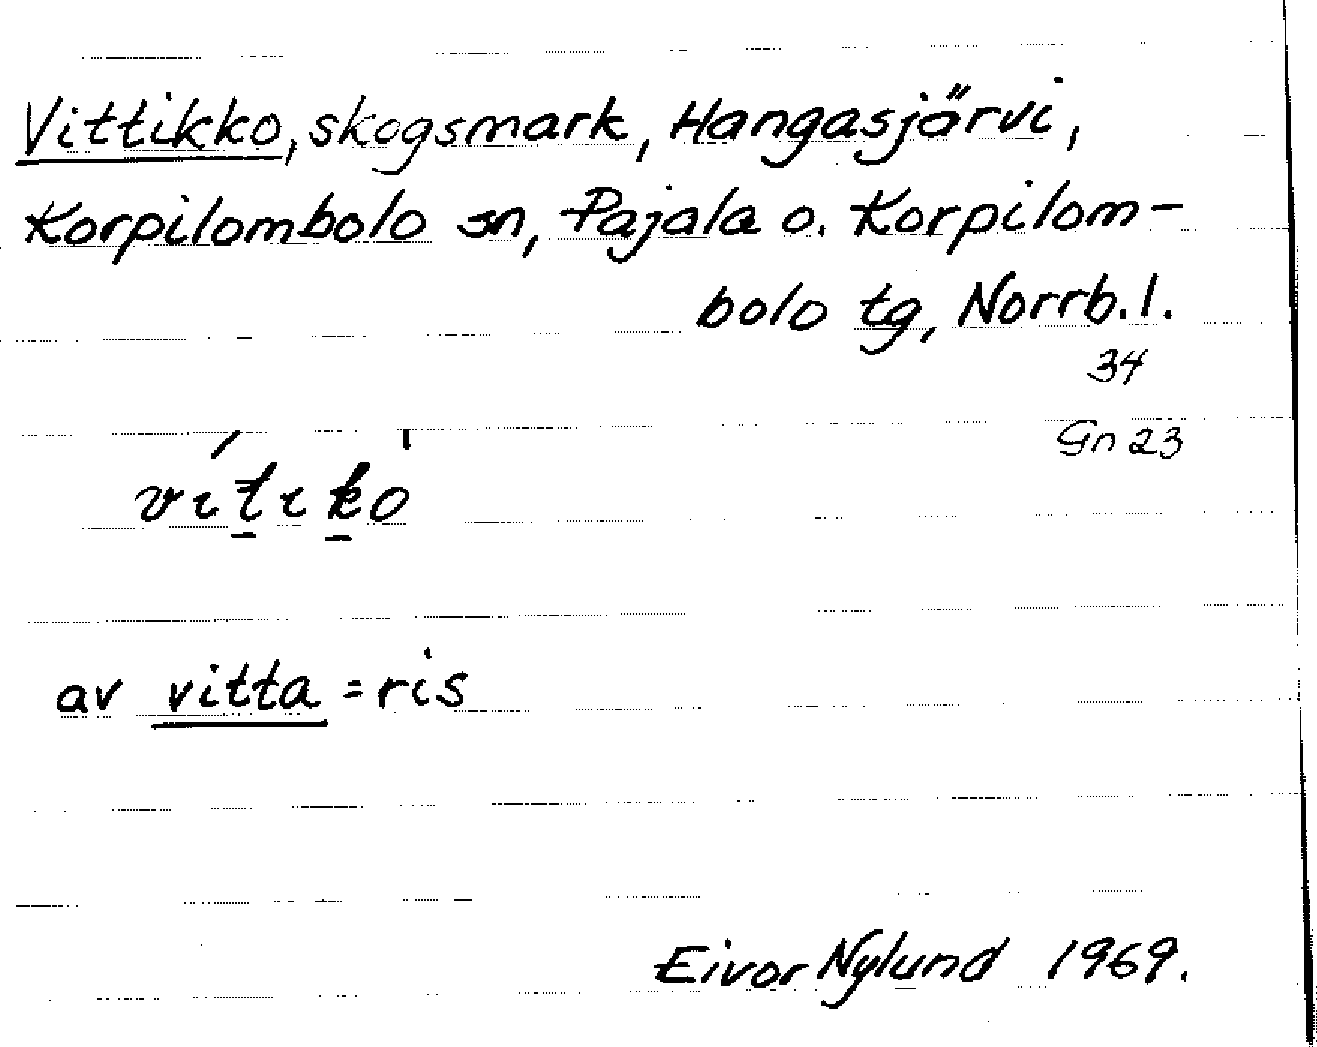 Vittikko, skogsmark, Hangasjärvi,
Korpilombolo sn, Pajala o. Korpilom-
bolo tg, Norrb. l.
34
Gn 23
vɩ́t̠ɩk̠o̍
av vitta = ris
Eivor Nylund 1969.